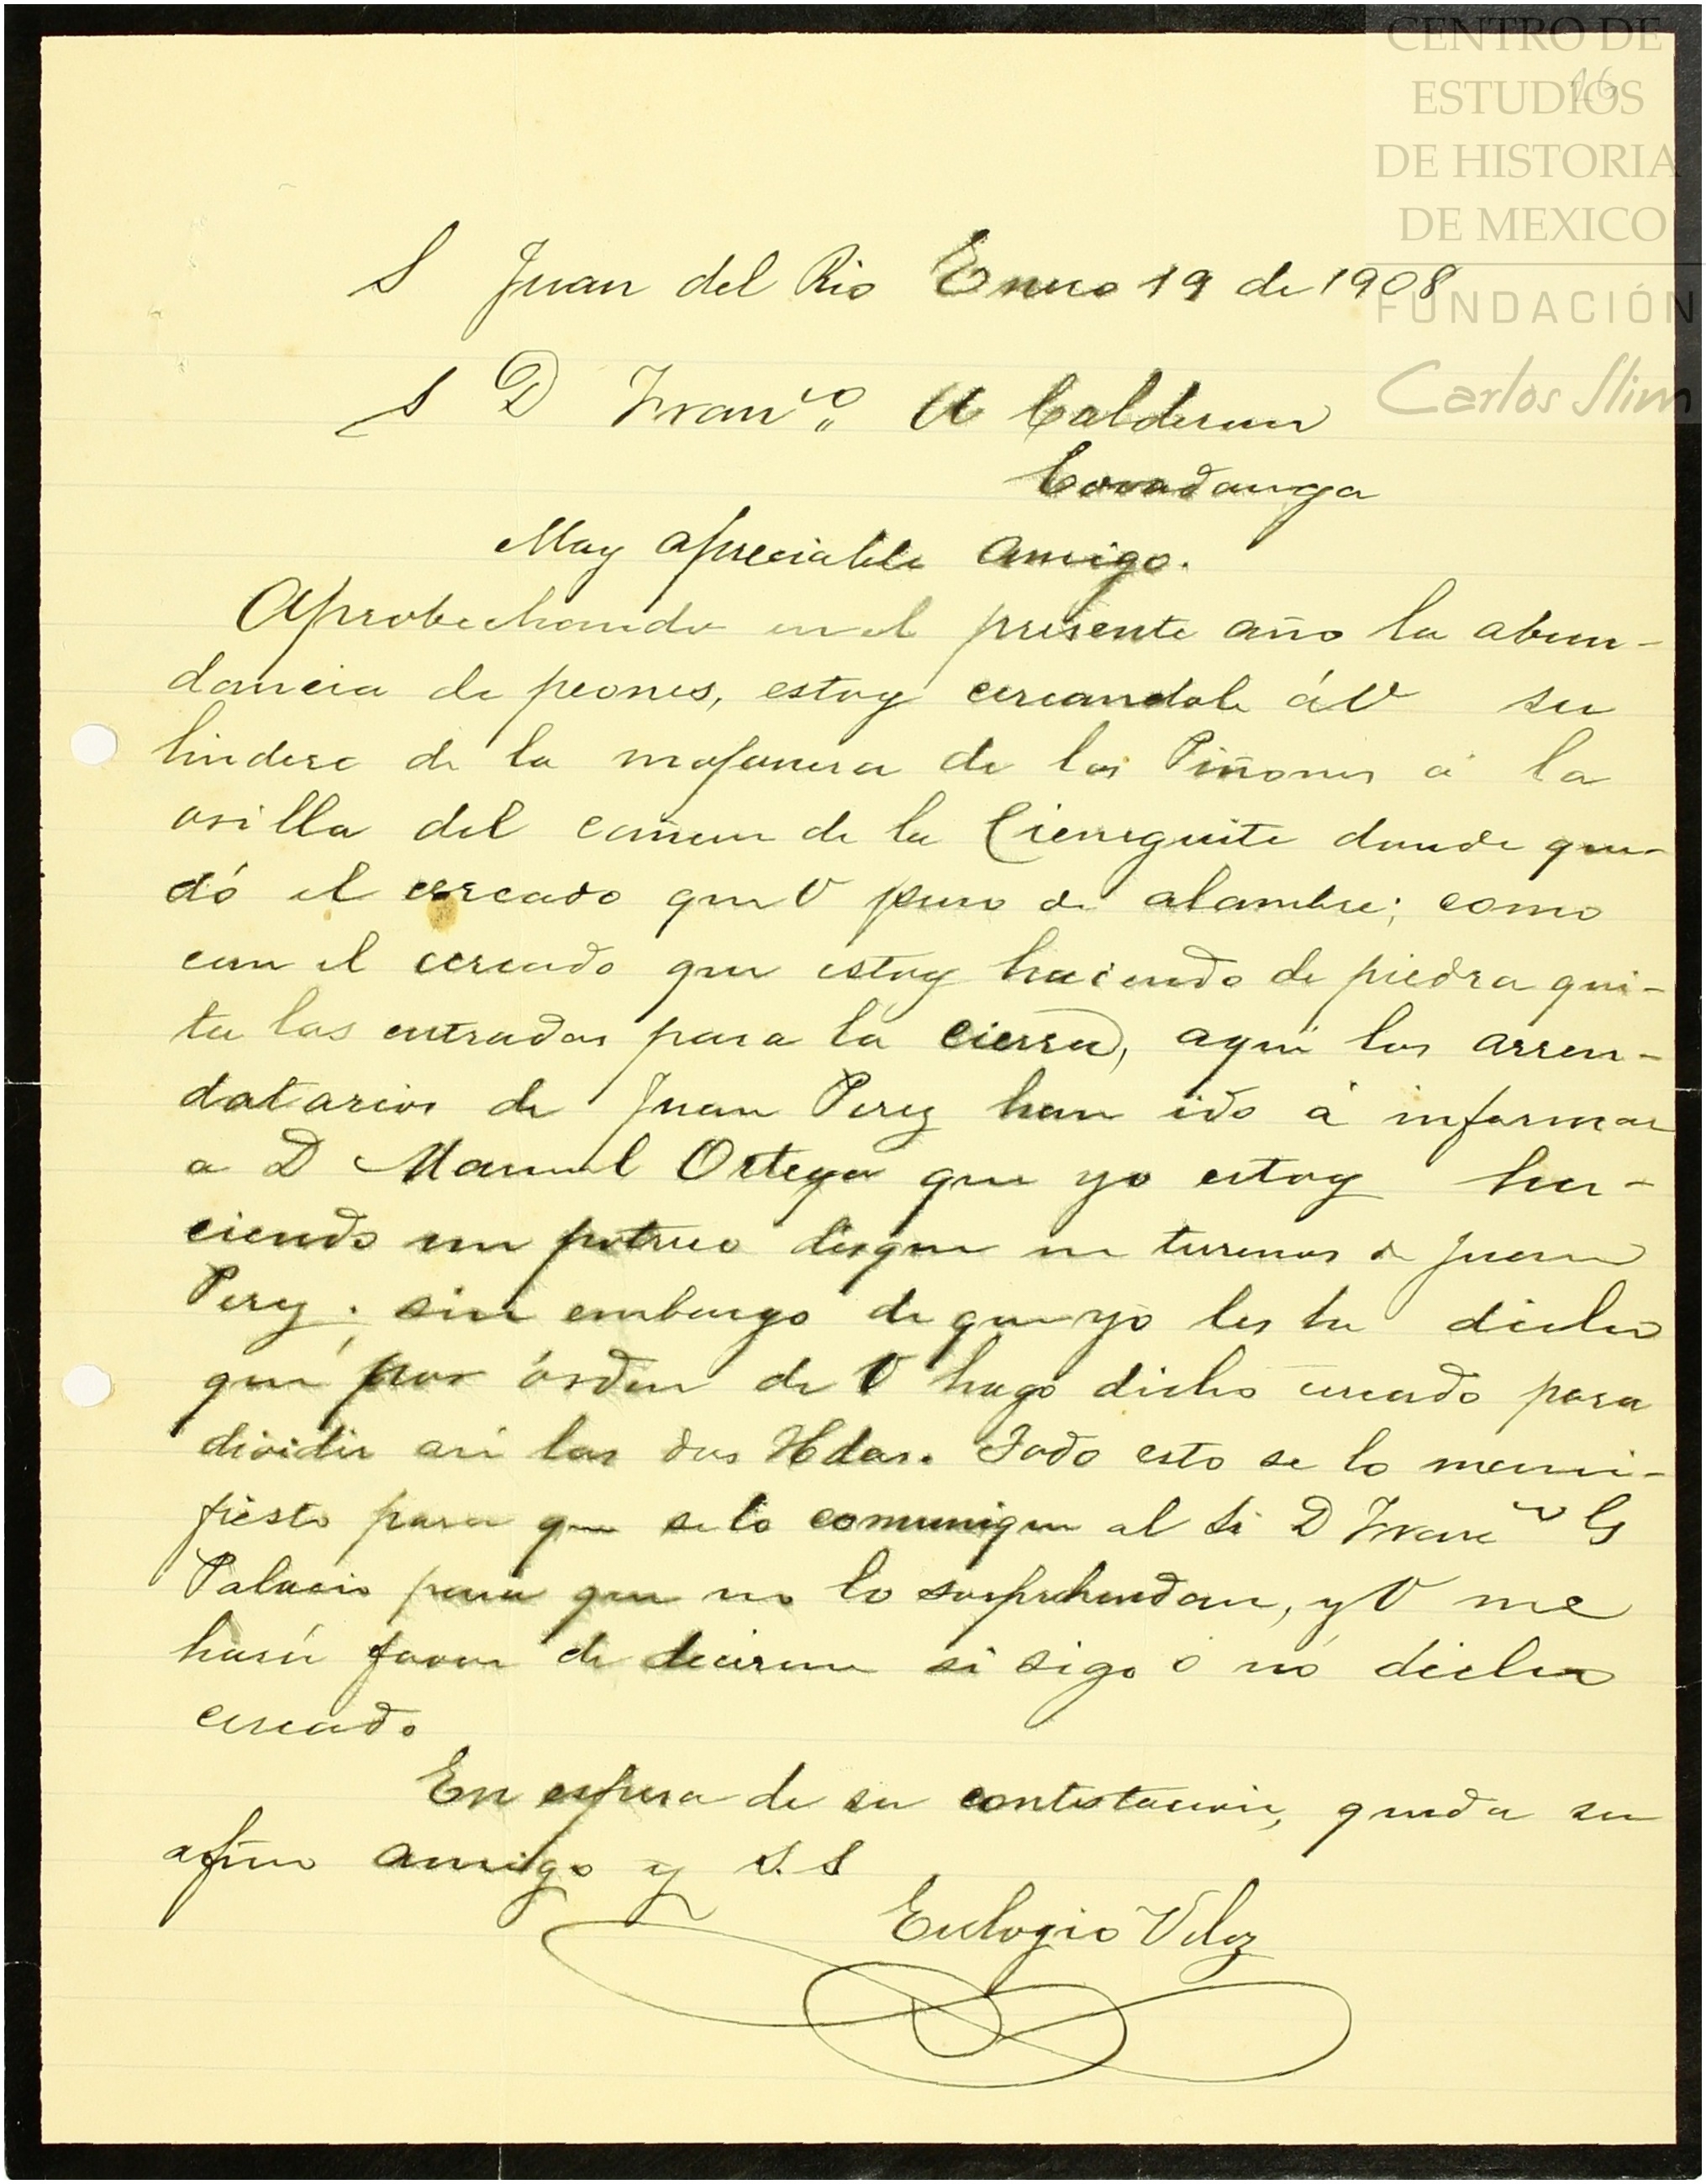 CENTRO DE
ESTUDIOS
DE HISTORIA
DE MEXICO
FUNDACIÓN
Carlos Slim
26
S Juan del Rio Enero 19 de 1908
S D Franco. A Calderon
Covadonga
Muy apreciable amigo.
Aprobechando en el presente año la abun-
dancia de peones, estoy cercandole á V su
lindero de la mojonera de los Piñones á la
orilla del camun de la Cieneguita donde que-
dó el cercado que V puso de alambre; como
con el cercado que estoy haciendo de piedra qui-
ta las entradas para la cierra, aquí los arren-
datarios de Juan Perez han ido á informar
a D Manuel Ortega que yo estoy ha-
ciendo un potrero disque en terrenos de Juan
Perez. sin embargo de que yo les he dicho
que por órden de V hago dicho cercado para
dividir asi las dos Hdas. Todo esto se lo mani-
fiesto para que se lo comunique al Sr D Franco G
Palacio para que no lo sorprehendan, y V me
hará favor de decirme si sigo ó nó dicho
cercado
En espera de su contestacion, queda su
afmo amigo y S.S
Eulogio Veloz